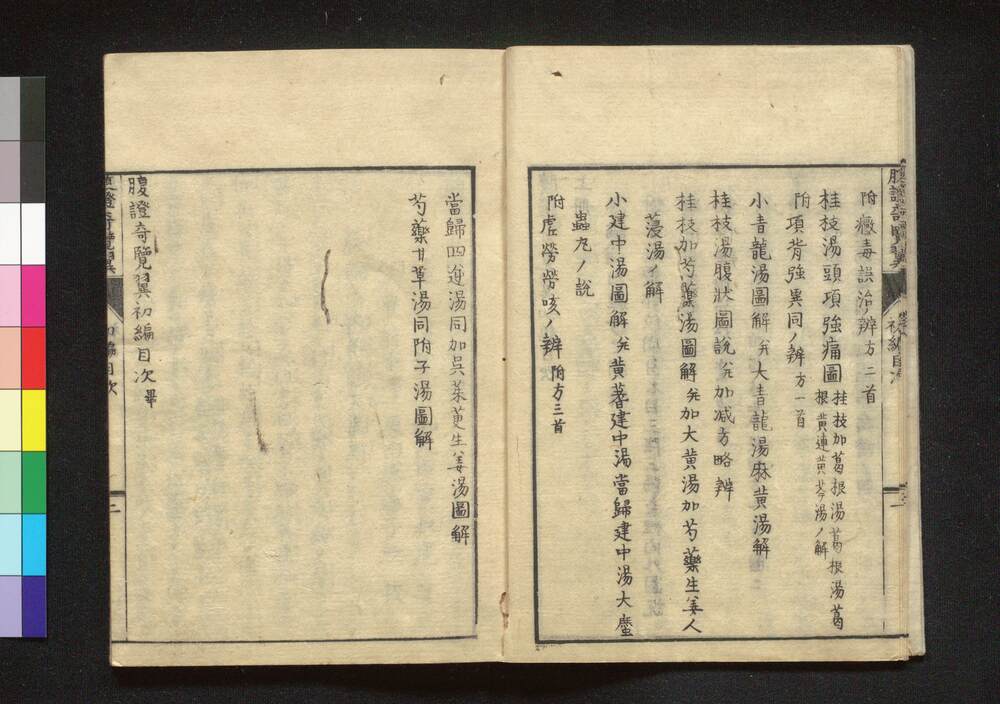 腹證奇覽翼 初編目次
附黴毒誤治ノ辨方二首
桂枝湯頭項強痛圖 桂枝加葛根湯葛根湯葛
根黄連黄芩湯ノ解
附項背強異同ノ辨 方一首
小青龍湯圖解并大青龍湯麻黄湯解
桂枝湯腹狀圖説并加减方略辨
桂枝加芍藥湯圖解并加大黄湯加芍藥生姜人
薓湯ノ解
小建中湯圖解并黄耆建中湯當歸建中湯大䗪
蟲丸ノ説
附虚勞勞咳ノ辨 附方三首
當歸四逆湯同加呉茱萸生姜湯圖解
芍藥甘草湯同附子湯圖解
腹證奇覽翼初編目次畢
腹證奇覽翼 初編目次 二